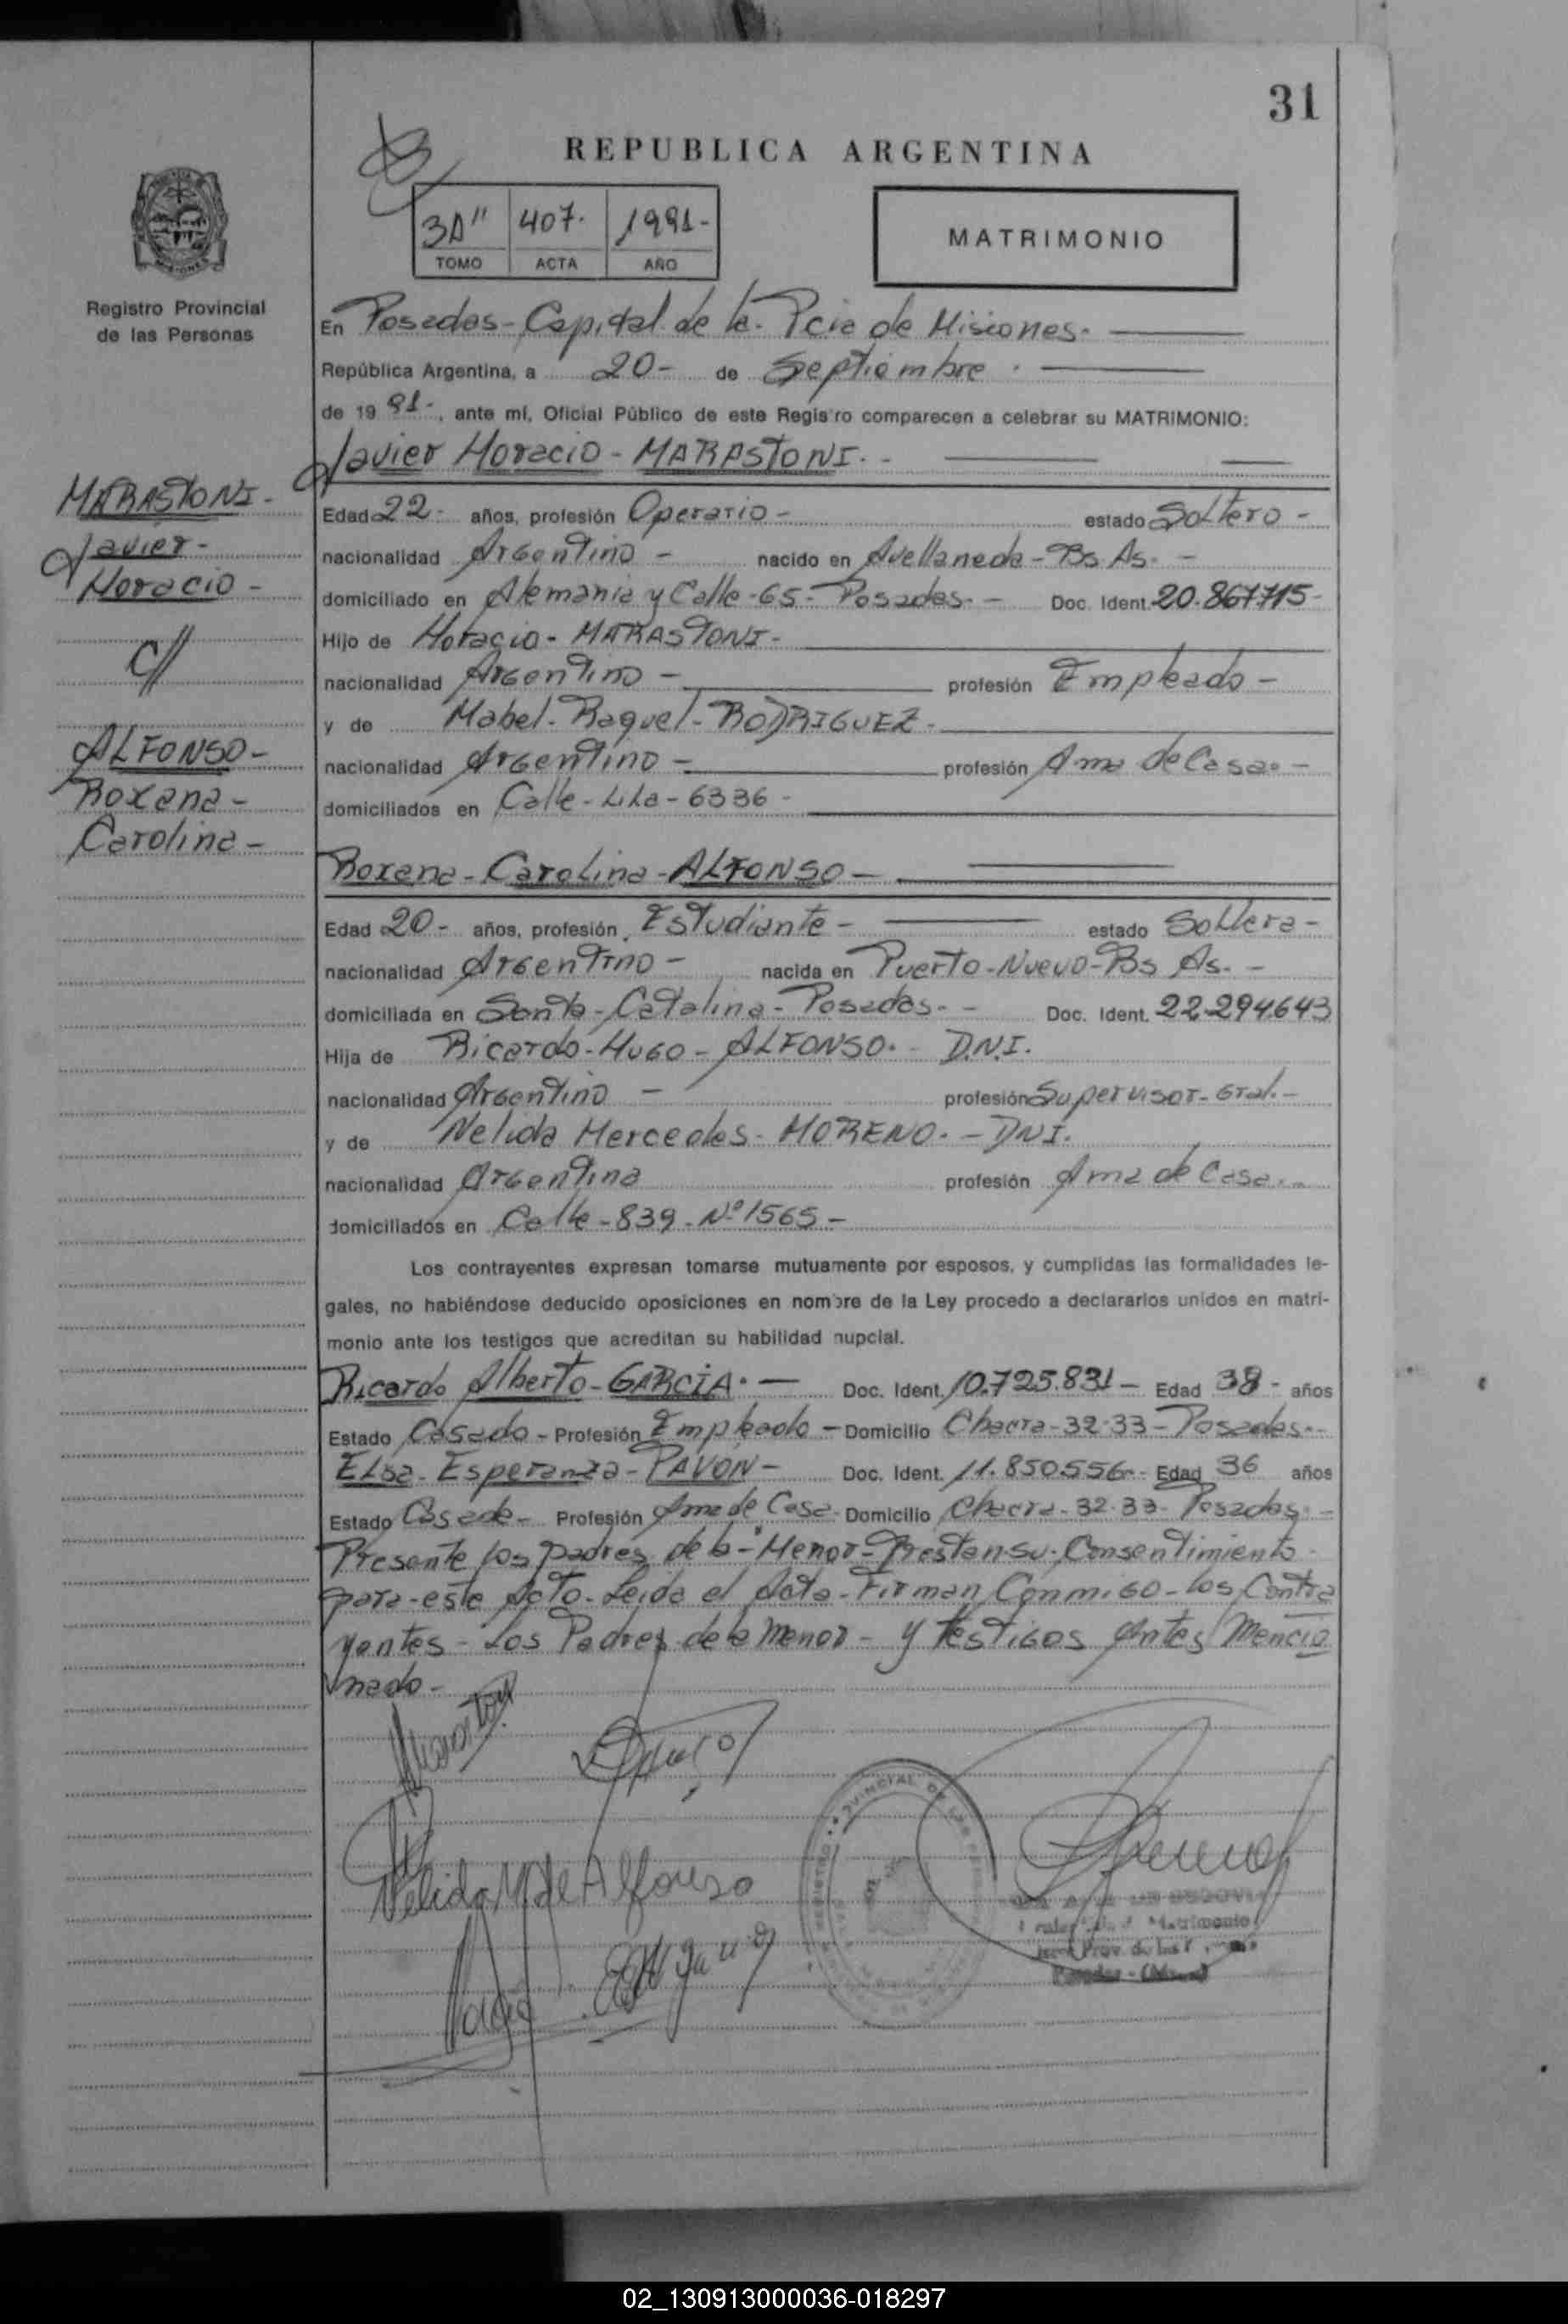 31
REPUBLICA ARGENTINA
3A" 407. 1991-
TOMO ACTA AÑO
MATRIMONIO
Registro Provincial
de las Personas
En Posadas - Capital de la Pcia de Misiones.
República Argentina, a 20- de Septiembre
de 1991-, ante mí, Oficial Público de este Registro comparecen a celebrar su MATRIMONIO:
Javier Horacio - MARASTONI.-
MARASTONI-
Javier-
Horacio-
c//
ALFONSO-
Roxana-
Carolina-
Edad 22- años, profesión Operario- estado Soltero-
nacionalidad Argentino- nacido en Avellaneda - Bs As.-
domiciliado en Alemania y Calle-65- Posadas.- Doc. Ident. 20.867.715-
Hijo de Horacio- MARASTONI-
nacionalidad Argentino- profesión Empleado-
y de Mabel- Raquel- RODRIGUEZ-
nacionalidad Argentino- profesión Ama de Casa-
domiciliados en Calle- - 6336-
Roxana - Carolina - ALFONSO-
Edad 20- años, profesión Estudiante- estado Soltera-
nacionalidad Argentino- nacida en Puerto-Nuevo-Bs As.-
domiciliada en Santa-Catalina-Posadas.- Doc. Ident. 22.294.643
Hija de Ricardo-Hugo-ALFONSO.- D.N.I.
nacionalidad Argentino- profesión Supervisor-Gral.-
y de Nelida Mercedes- MORENO.-DNI.
nacionalidad Argentina profesión Ama de Casa.-
domiciliados en Calle-839-Nº1565-
Los contrayentes expresan tomarse mutuamente por esposos, y cumplidas las formalidades le-
gales, no habiéndose deducido oposiciones en nombre de la Ley procedo a declararlos unidos en matri-
monio ante los testigos que acreditan su habilidad nupcial.
Ricardo Alberto-GARCIA.- Doc. Ident. 10.725.831- Edad 38- años
Estado Casado- Profesión Empleado- Domicilio Chacra-32-33-Posadas.-
Elsa-Esperanza-PAVON- Doc. Ident. 11.850.556- Edad 36 años
Estado Casada- Profesión Ama de Casa- Domicilio Chacra-32-33-Posadas.-
Presente los padres de la-Menor-Prestan su-Consentimiento-
para-este Acto-Leida el Acta-Firman Conmigo-los Contra
yentes-Los Padres de la Menor-y testigos Antes Mencio
nado-
Nelida M de Alfonso
02_130913000036-018297